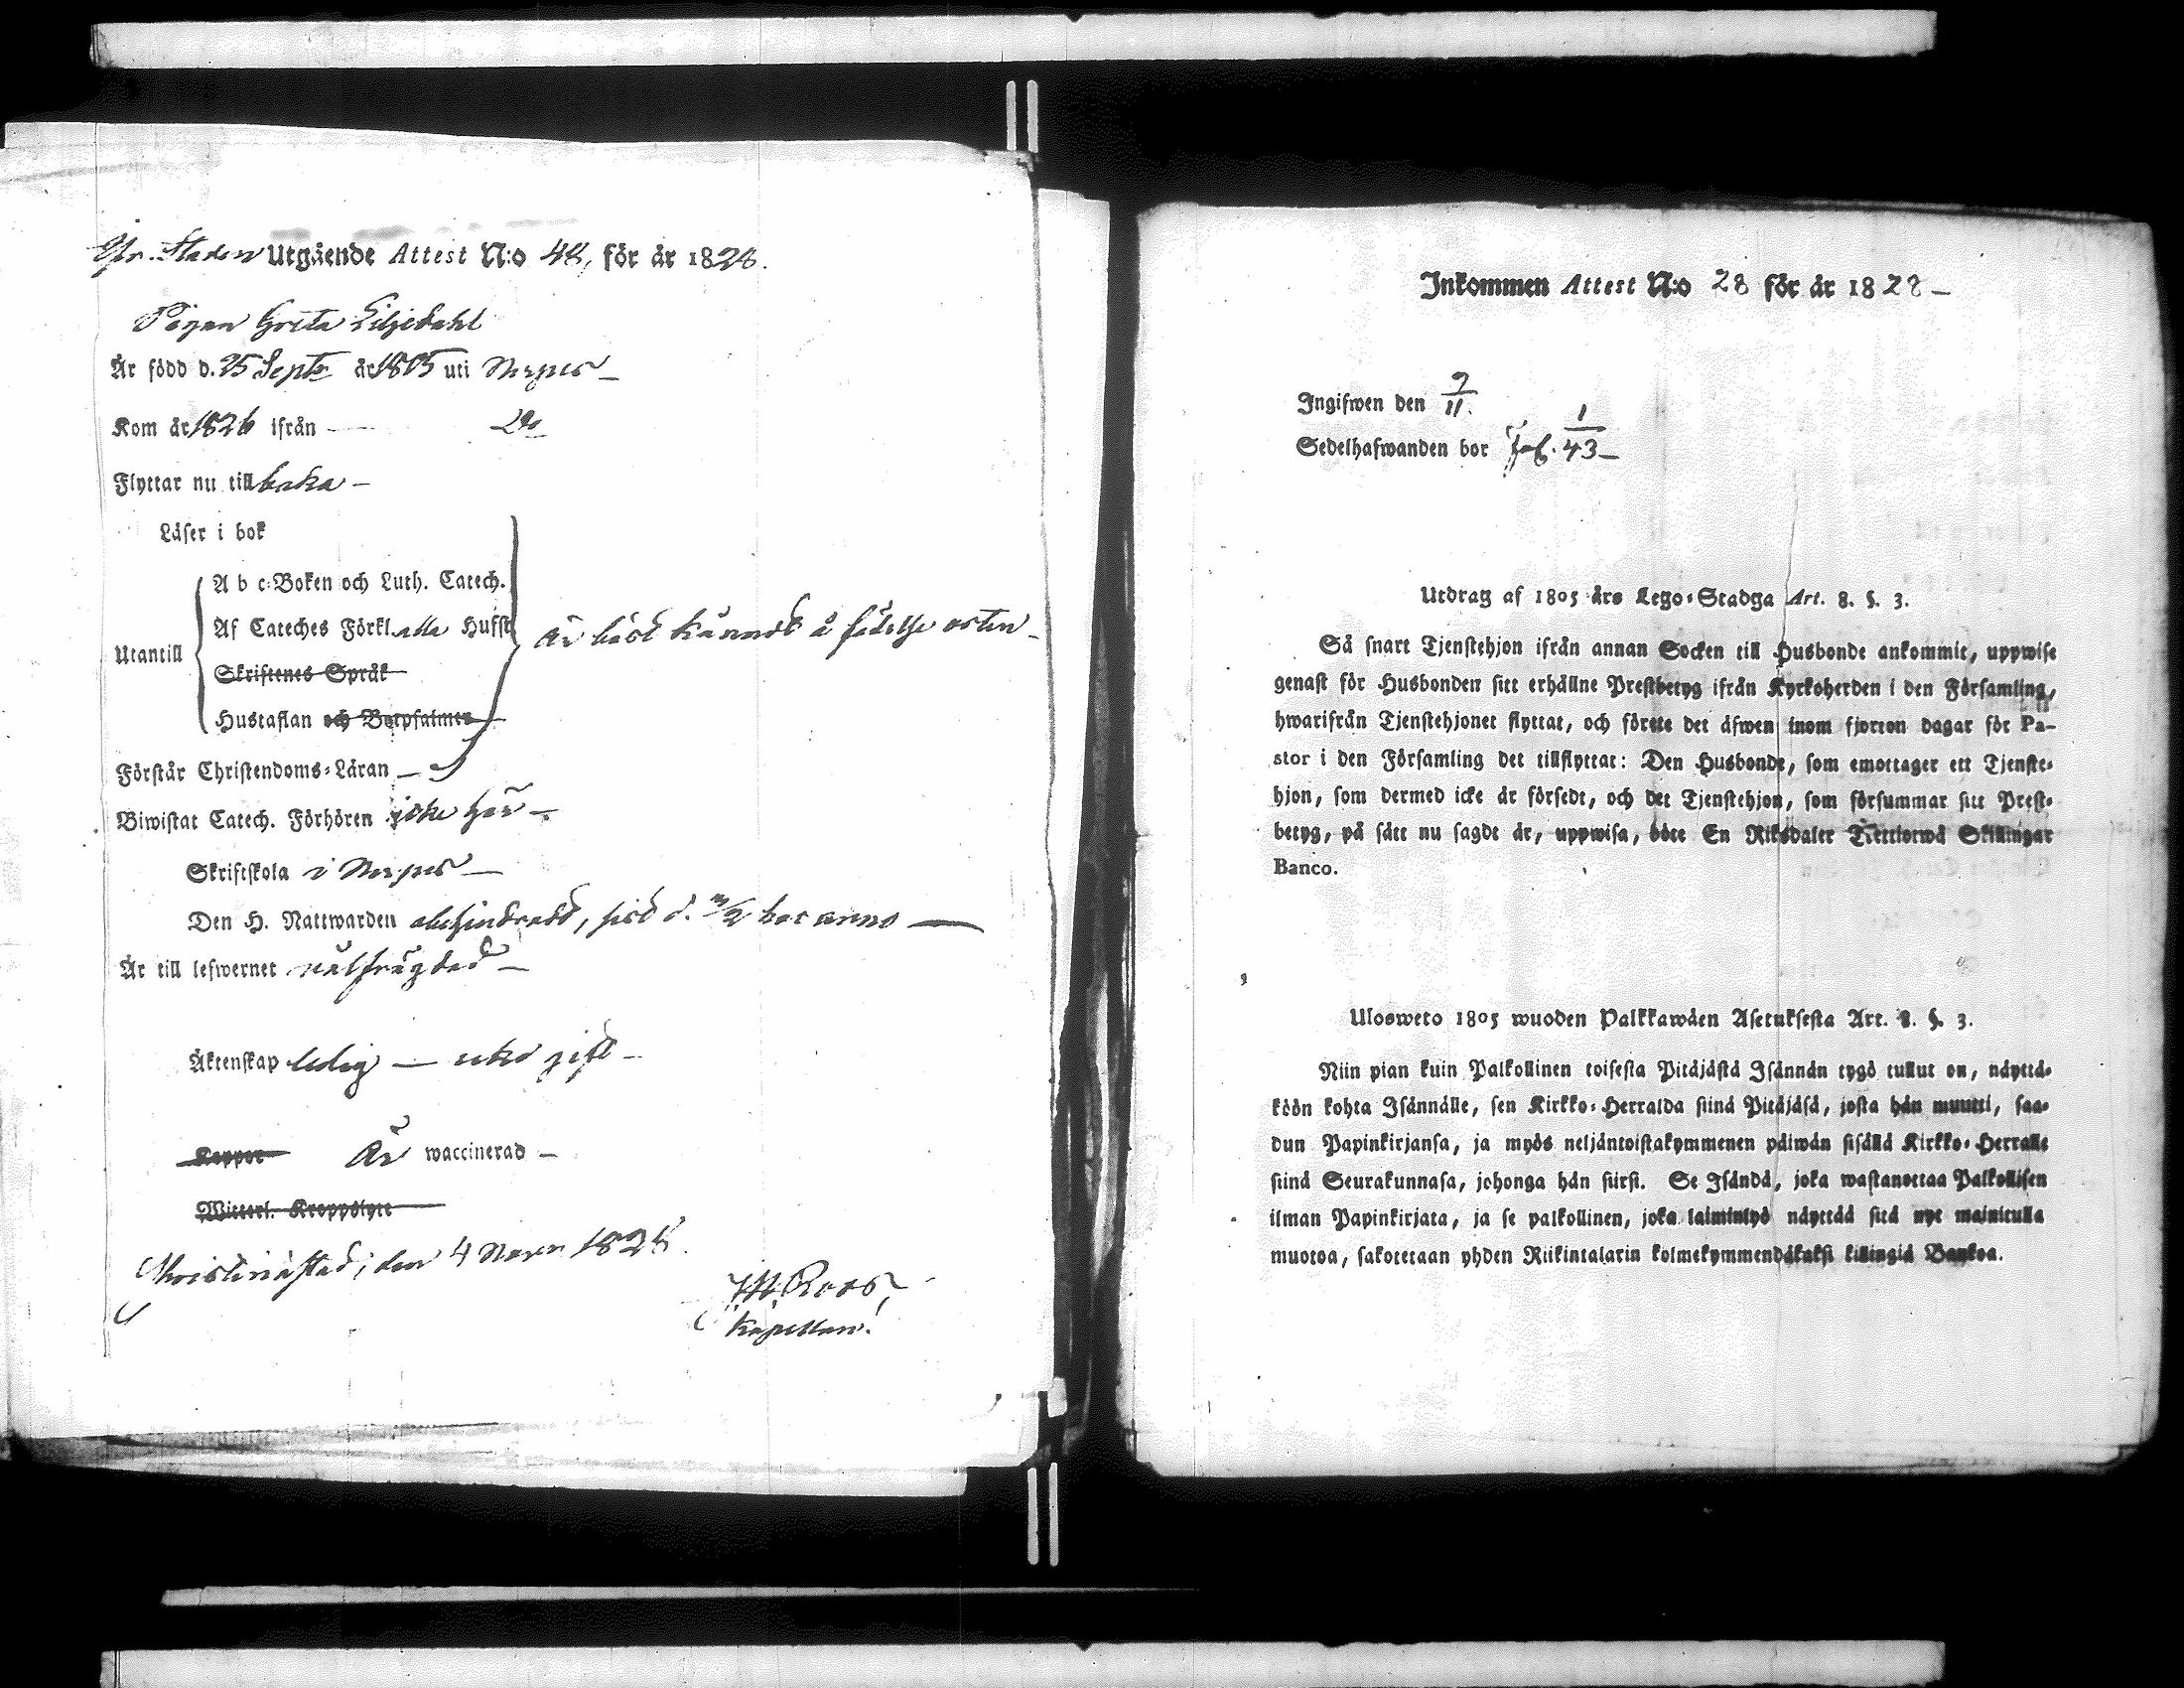 Chr. Staden Utgående Attest N:o 48, för år 1828.
Pigan Greta Liljedahl
Är född d. 25 Septr år 1805 uti Nerpes
Kom år 1826 ifrån — Do
Flyttar nu till baka —
Läser i bok
A b c-Boken och Luth. Catech.
Af Cateches Förkl. alla Hufst
är bäst känndt å födelse orten —
Utantill
Skriftenes Språk
Hustaflan och Botpsalmer
Förstår Christendoms-Läran —
Biwistat Catech. Förhören icke här —
Skriftskola i Nerpes —
Den H. Nattwarden obehindradt, sist d. /2 hoc anno —
Är till lefwernet välfrägdad —
Äktenskap ledig — icke gift —
Koppor Är waccinerad —
Witterl. Kroppslyte
Christinæstad, den 4 Novr 1828.
Roos,
Kapellan.
Inkommen Attest N:o 28 för år 1828 —
Ingifwen den 9/11.
Sedelhafwanden bor Fol. 1/43 —
Utdrag af 1805 års Lego-Stadga Art. 8. §. 3.
Så snart Tjenstehjon ifrån annan Socken till Husbonde ankommit, uppwise
genast för Husbonden sitt erhållne Prestbetyg ifrån Kyrkoherden i den Församling,
hwarifrån Tjenstehjonet flyttat, och förete det äfwen inom fjorton dagar för Pa-
stor i den Församling det tillflyttat: Den Husbonde, som emottager ett Tjenste-
hjon, som dermed icke är försedt, och det Tjenstehjon, som försummar sitt Prest-
betyg, på sätt nu sagdt är, uppwisa, böte En Riksdaler Trettiotwå Skillingar
Banco.
Ulosweto 1805 wuoden Palkkawäen Asetuksesta Art. 8. §. 3.
Niin pian kuin Palkollinen toisesta Pitäjästä Isännän tygö tullut on, näyttä-
köön kohta Isännälle, sen Kirkko-Herralda siinä Pitäjäsä, josta hän muutti, saa-
dun Papinkirjansa, ja myös neljäntoistakymmenen päiwän sisällä Kirkko-Herralle
siinä Seurakunnasa, johonga hän siirsi. Se Isändä, joka wastanottaa Palkollisen
ilman Papinkirjata, ja se palkollinen, joka laiminlyö näyttää sitä nyt mainitulla
muotoa, sakotetaan yhden Riikintalarin kolmekymmendäkaksi killingiä Bankoa.